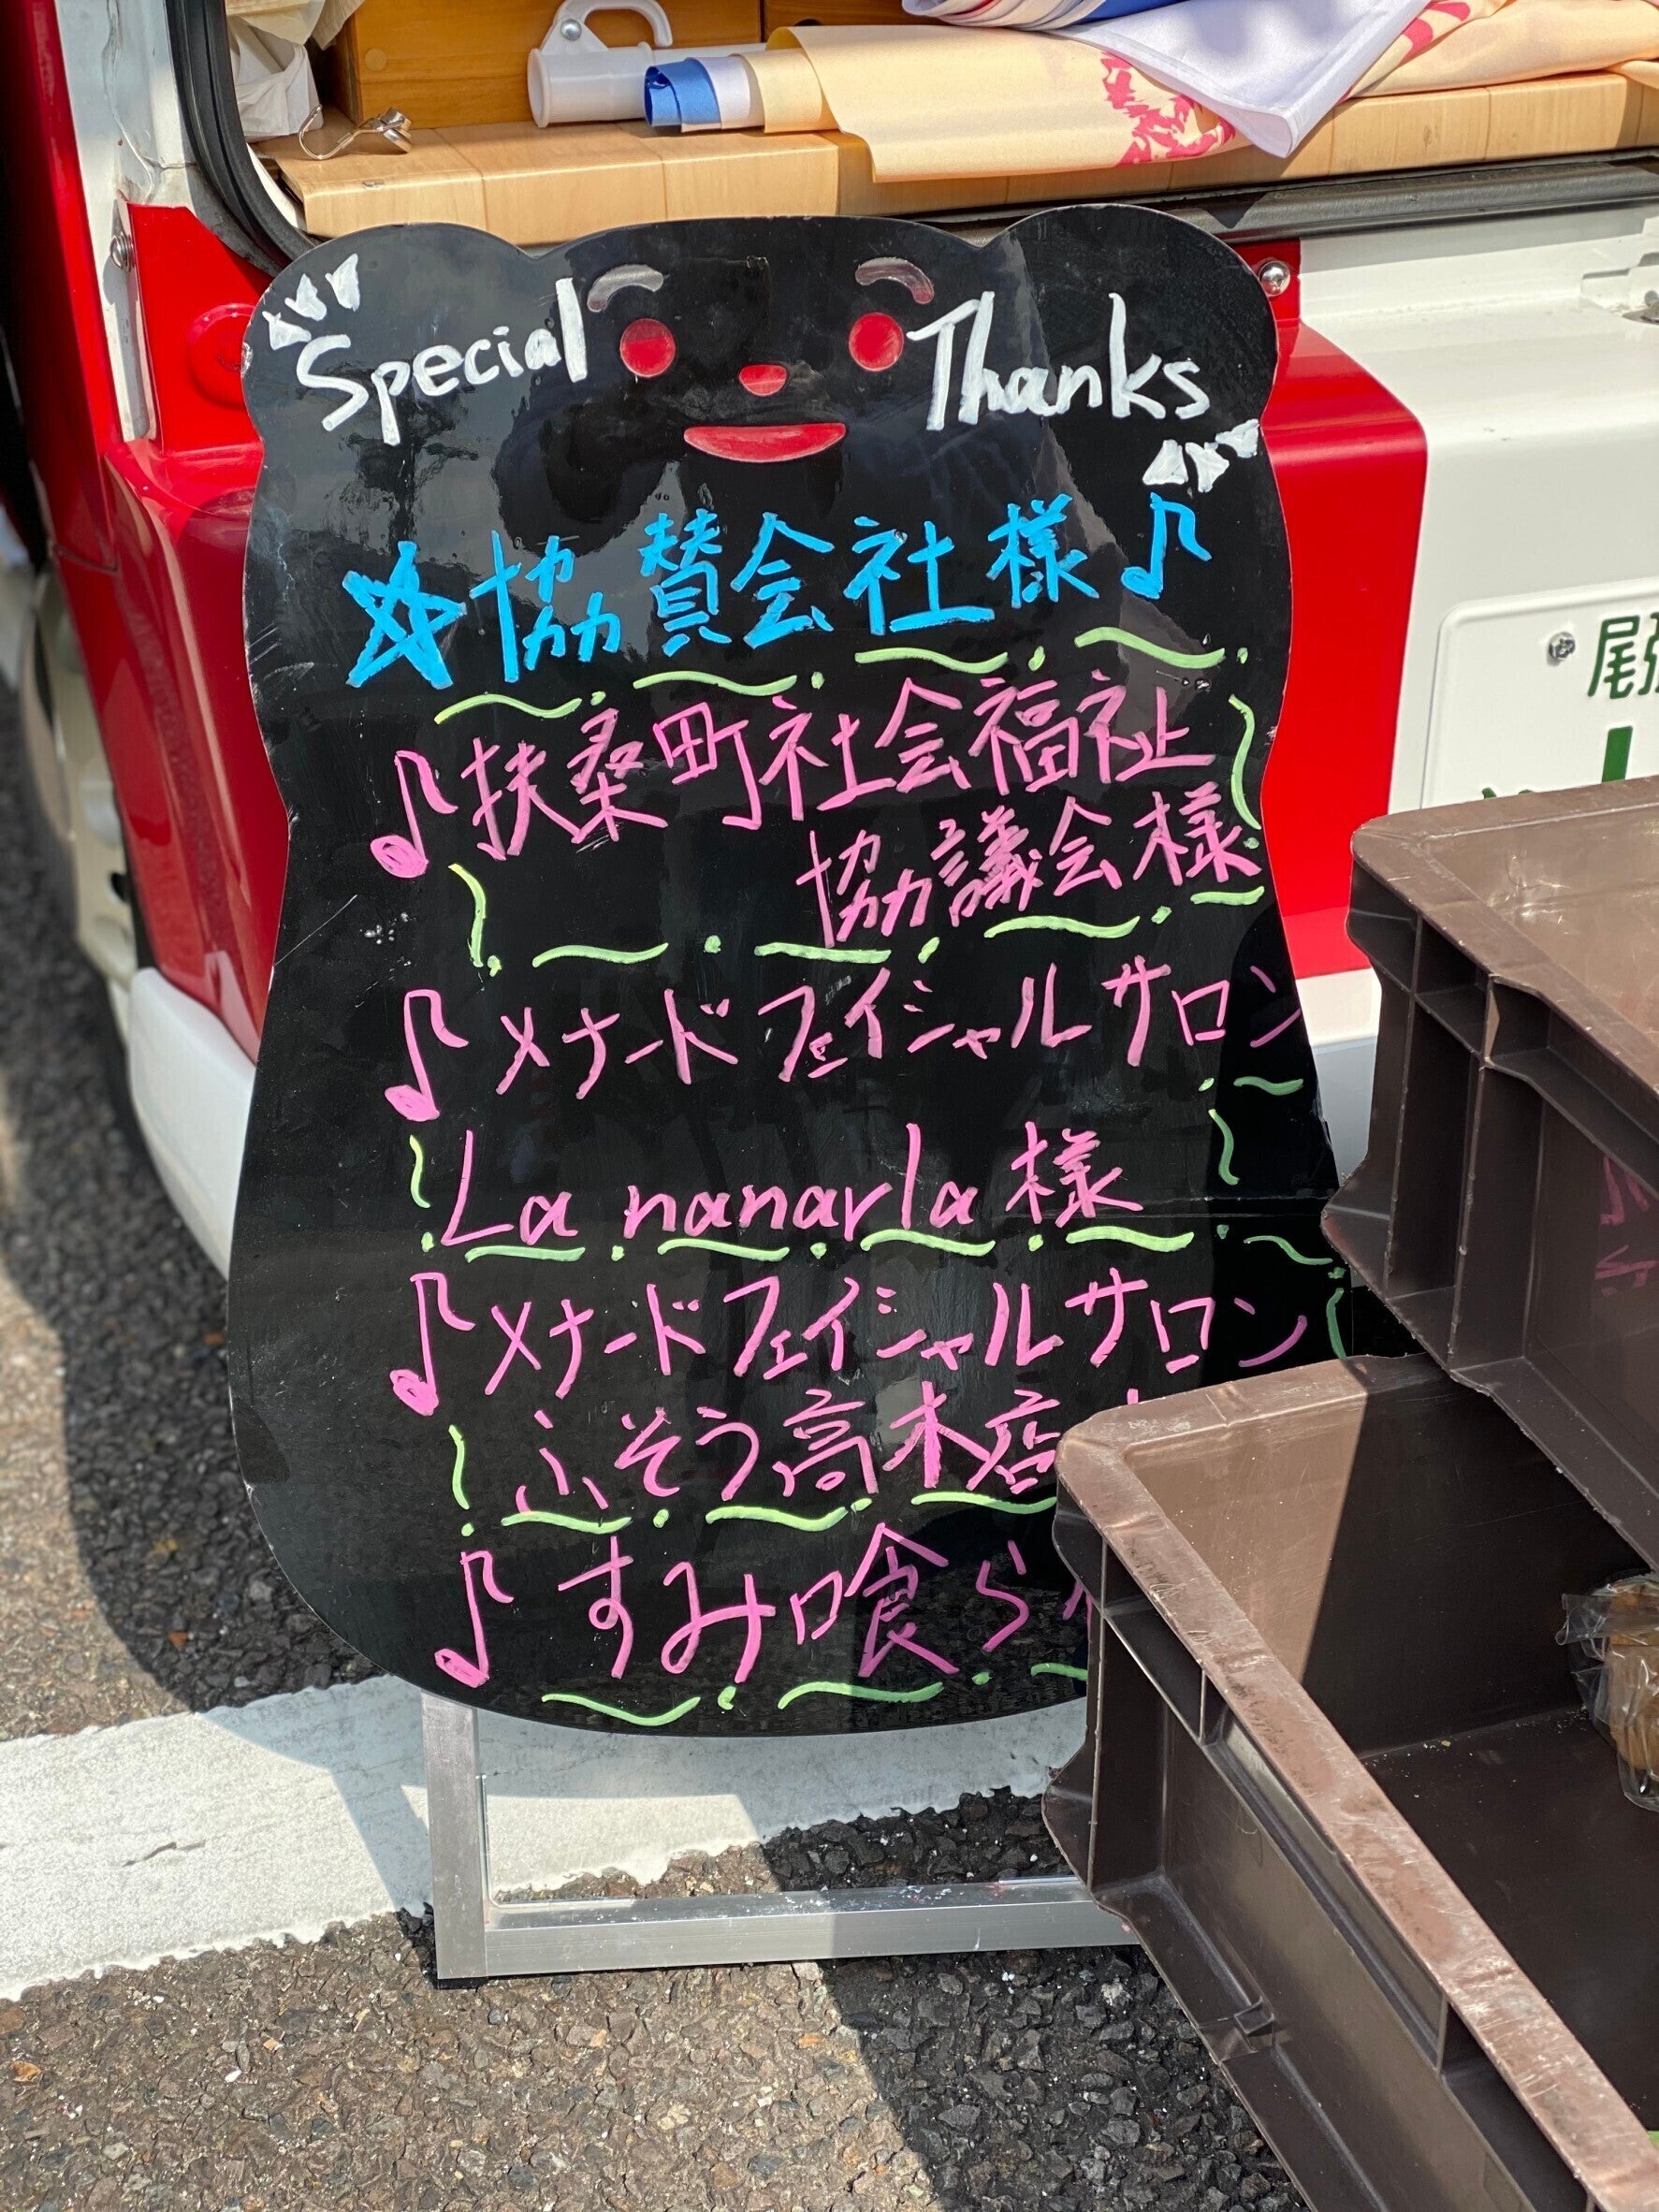 Special Thanks
☆協賛会社様♪
♪扶桑町社会福祉
協議会様
♪メナードフェイシャルサロン
La nanarla様
♪メナードフェイシャルサロン
ふそう高木店
♪すみ喰ら